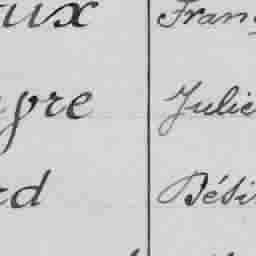 aux Fran
ayre Julie
rd Dési